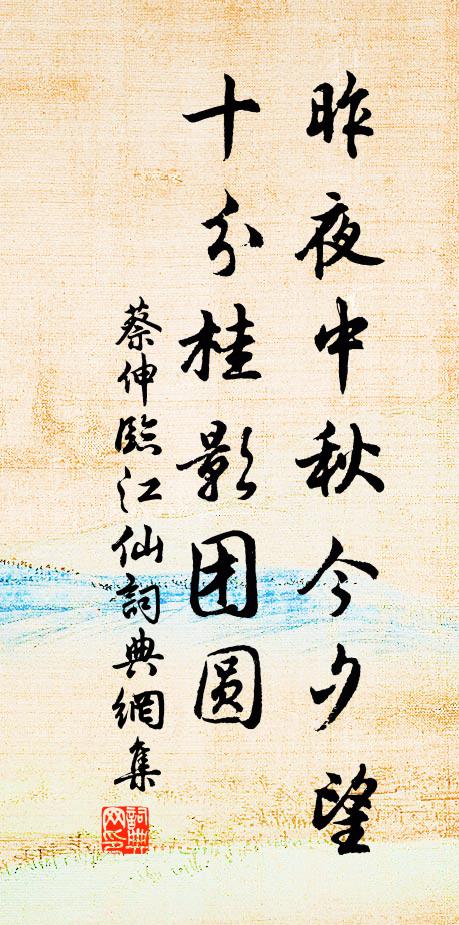 昨夜中秋今夕望
十分桂影团圆
蔡伸臨江仙詞典網集
詞典网印